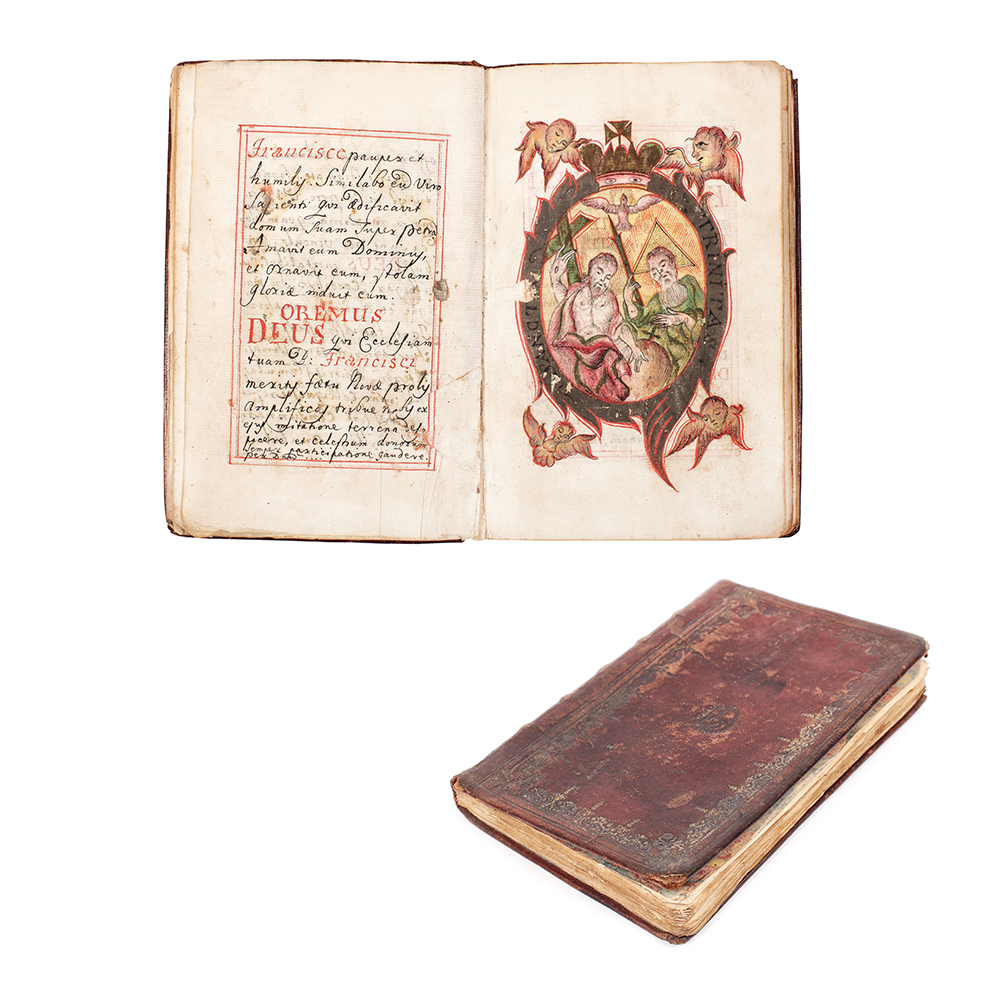 Francisce pauper et
humilis. Similabo eū Viro
Sapienti qvi ædificavit
domum suam super petrā
Amavit eum Dominus,
et ornavit eum, stolam
gloriæ induit eum.
OREMUS
DEUS qvi Ecclesiam
tuam B: Francisci
meritis fœtu Novæ prolis
amplificas tribue nobis ex
ejus imitatione terrena des-
picere, et celestium donorum
semper participatione gaudere.
per
TRINITAS